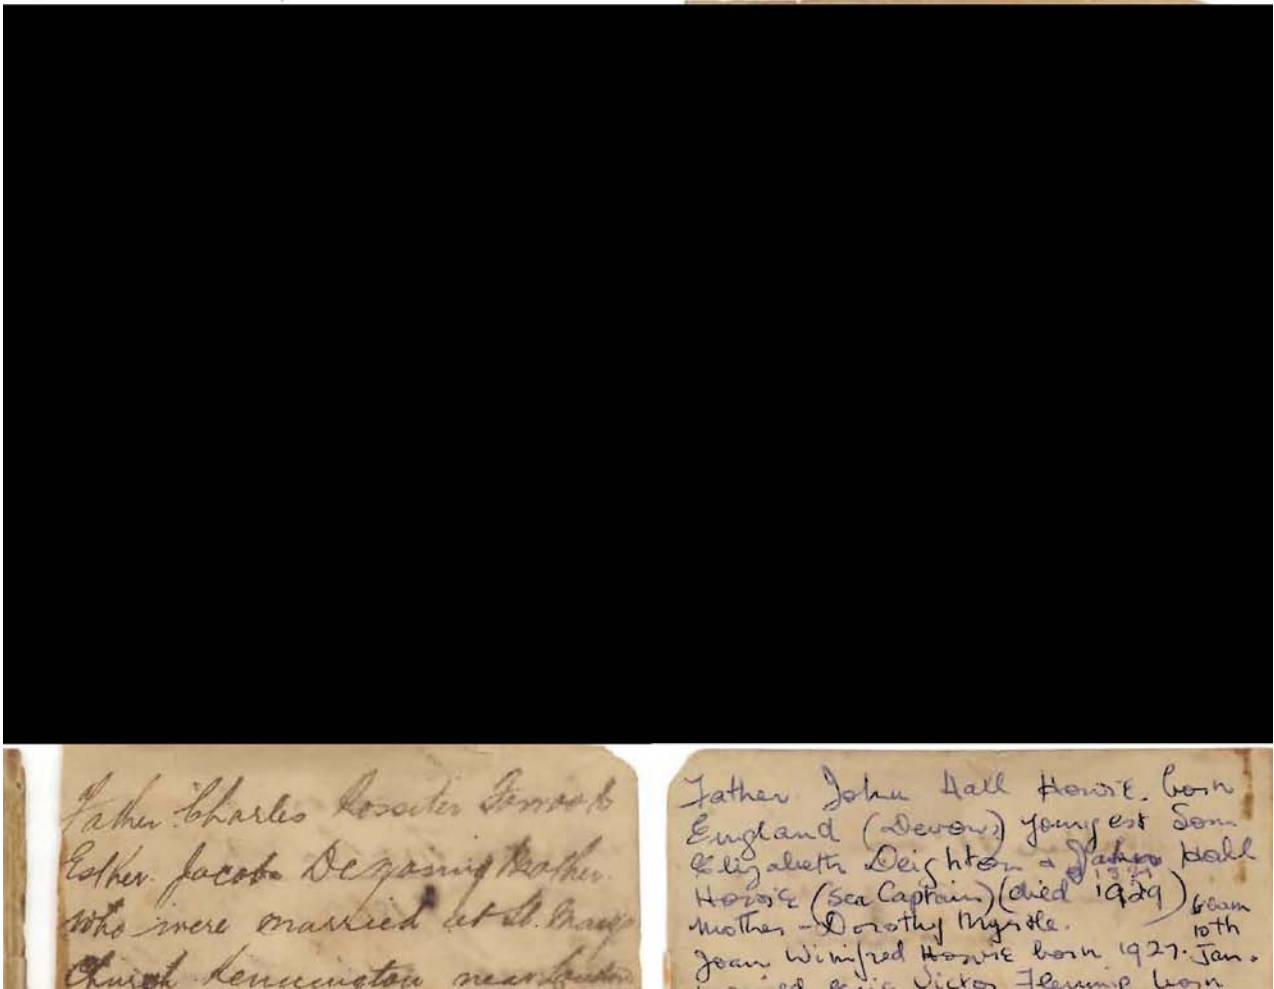 Father Charles Rossiter
Esther Jacobs Mother
who were married at St. Marys
Church Kennington near London
Father John Hall Howie. born
England (Devon) youngest Son
Elizabeth Deighton & Hall
Howie (Sea Captain) (died 1929)
Mother - Dorothy Myrtle.
6am
10th
Joan Winifred Howie born 1927. Jan.
Victor Fleming born